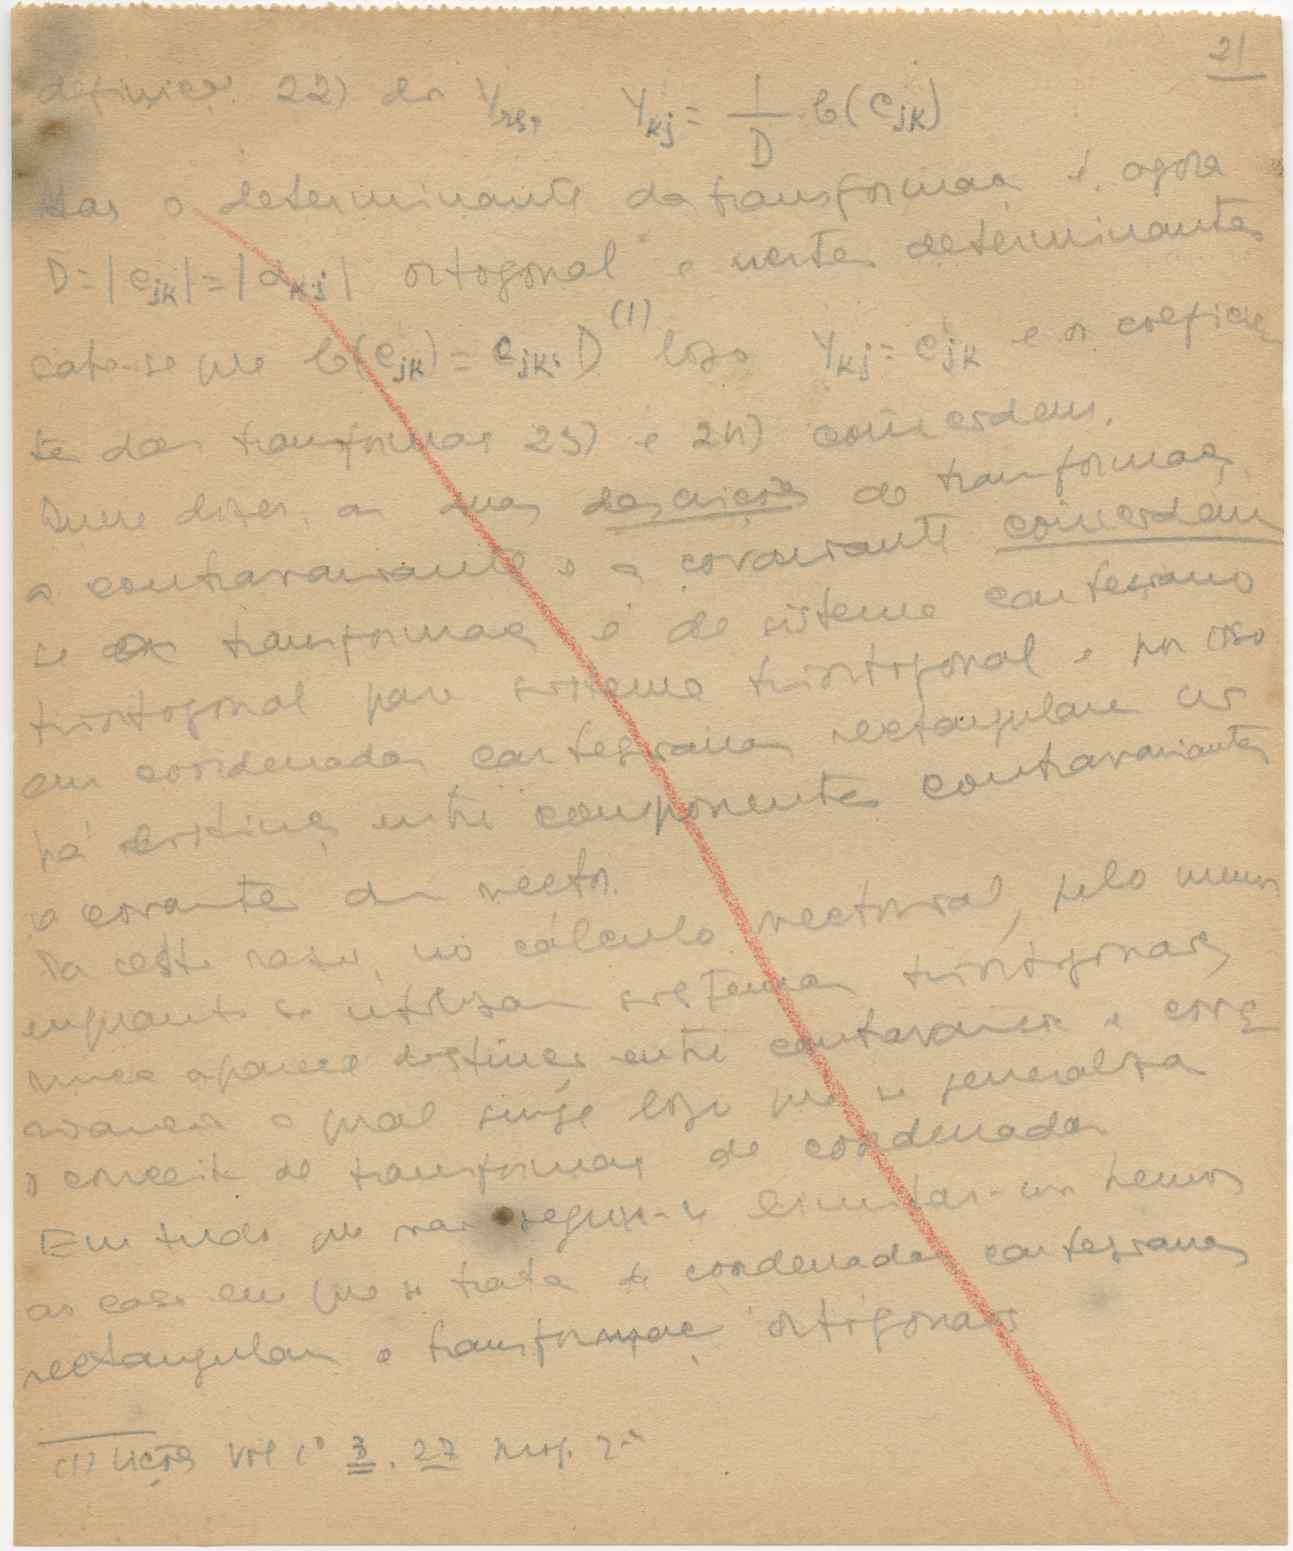 21
definição 22) dos γrs, γkj = 1/D · C(cjk)
Mas o determinante da transformação é, agora
D = |cjk| = |αkj| ortogonal e nestes determinantes
sabe-se que C(cjk) = cjk. D (1) logo γkj = cjk e os coeficien
tes das transformações 23) e 24) coincidem.
Quere dizer, as duas definições de transformação,
a contravariante e a covariante coincidem
se a transformação é de sistema cartesiano
triortogonal para sistema triortogonal e por isso
em coordenadas cartesianas rectangulares não
há distinção entre componentes contravariantes
e covariantes dum vector.
Por esta razão, no cálculo vectorial, pelo menos
enquanto se utilizam sistemas triortogonais
nunca aparece distinção entre contravariância e cova
riância o qual surge logo que se generaliza
o conceito de transformação de coordenadas
Em tudo que vai seguir-se limitar-nos hemos
ao caso em que se trata de coordenadas cartesianas
rectangulares e transformações ortogonais
(1) Lições Vol 1º 3. 27 prop. 2ª